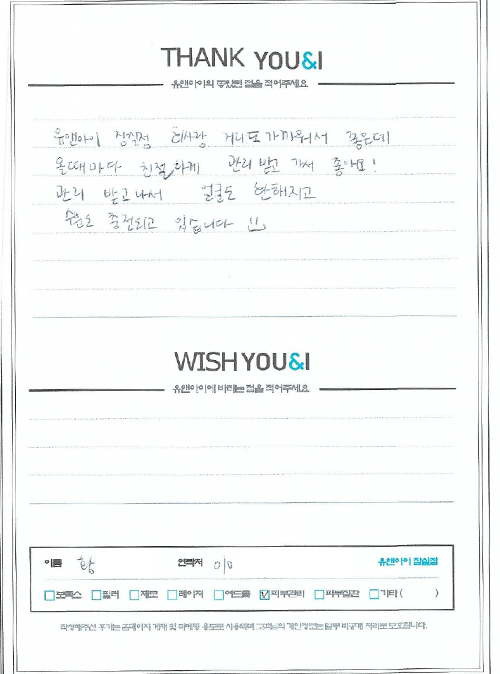 THANK YOU&I
유앤아이의 좋았던 점을 적어주세요
유앤아이 잠실점 회사랑 거리도 가까워서 좋은데
올때마다 친절하게 관리 받고 가서 좋아요!
관리 받고나서 얼굴도 환해지고
수분도 충전되고 있습니다
WISH YOU&I
유앤아이에 바라는 점을 적어주세요
이름 황 연락처 010 유앤아이 잠실점
보톡스 필러 제모 레이저 여드름 피부관리 피부질환 기타 ( )
작성해주신 후기는 홈페이지 게재 및 마케팅 용도로 사용되며 고객님의 개인정보는 일부 비공개 처리로 보호합니다.